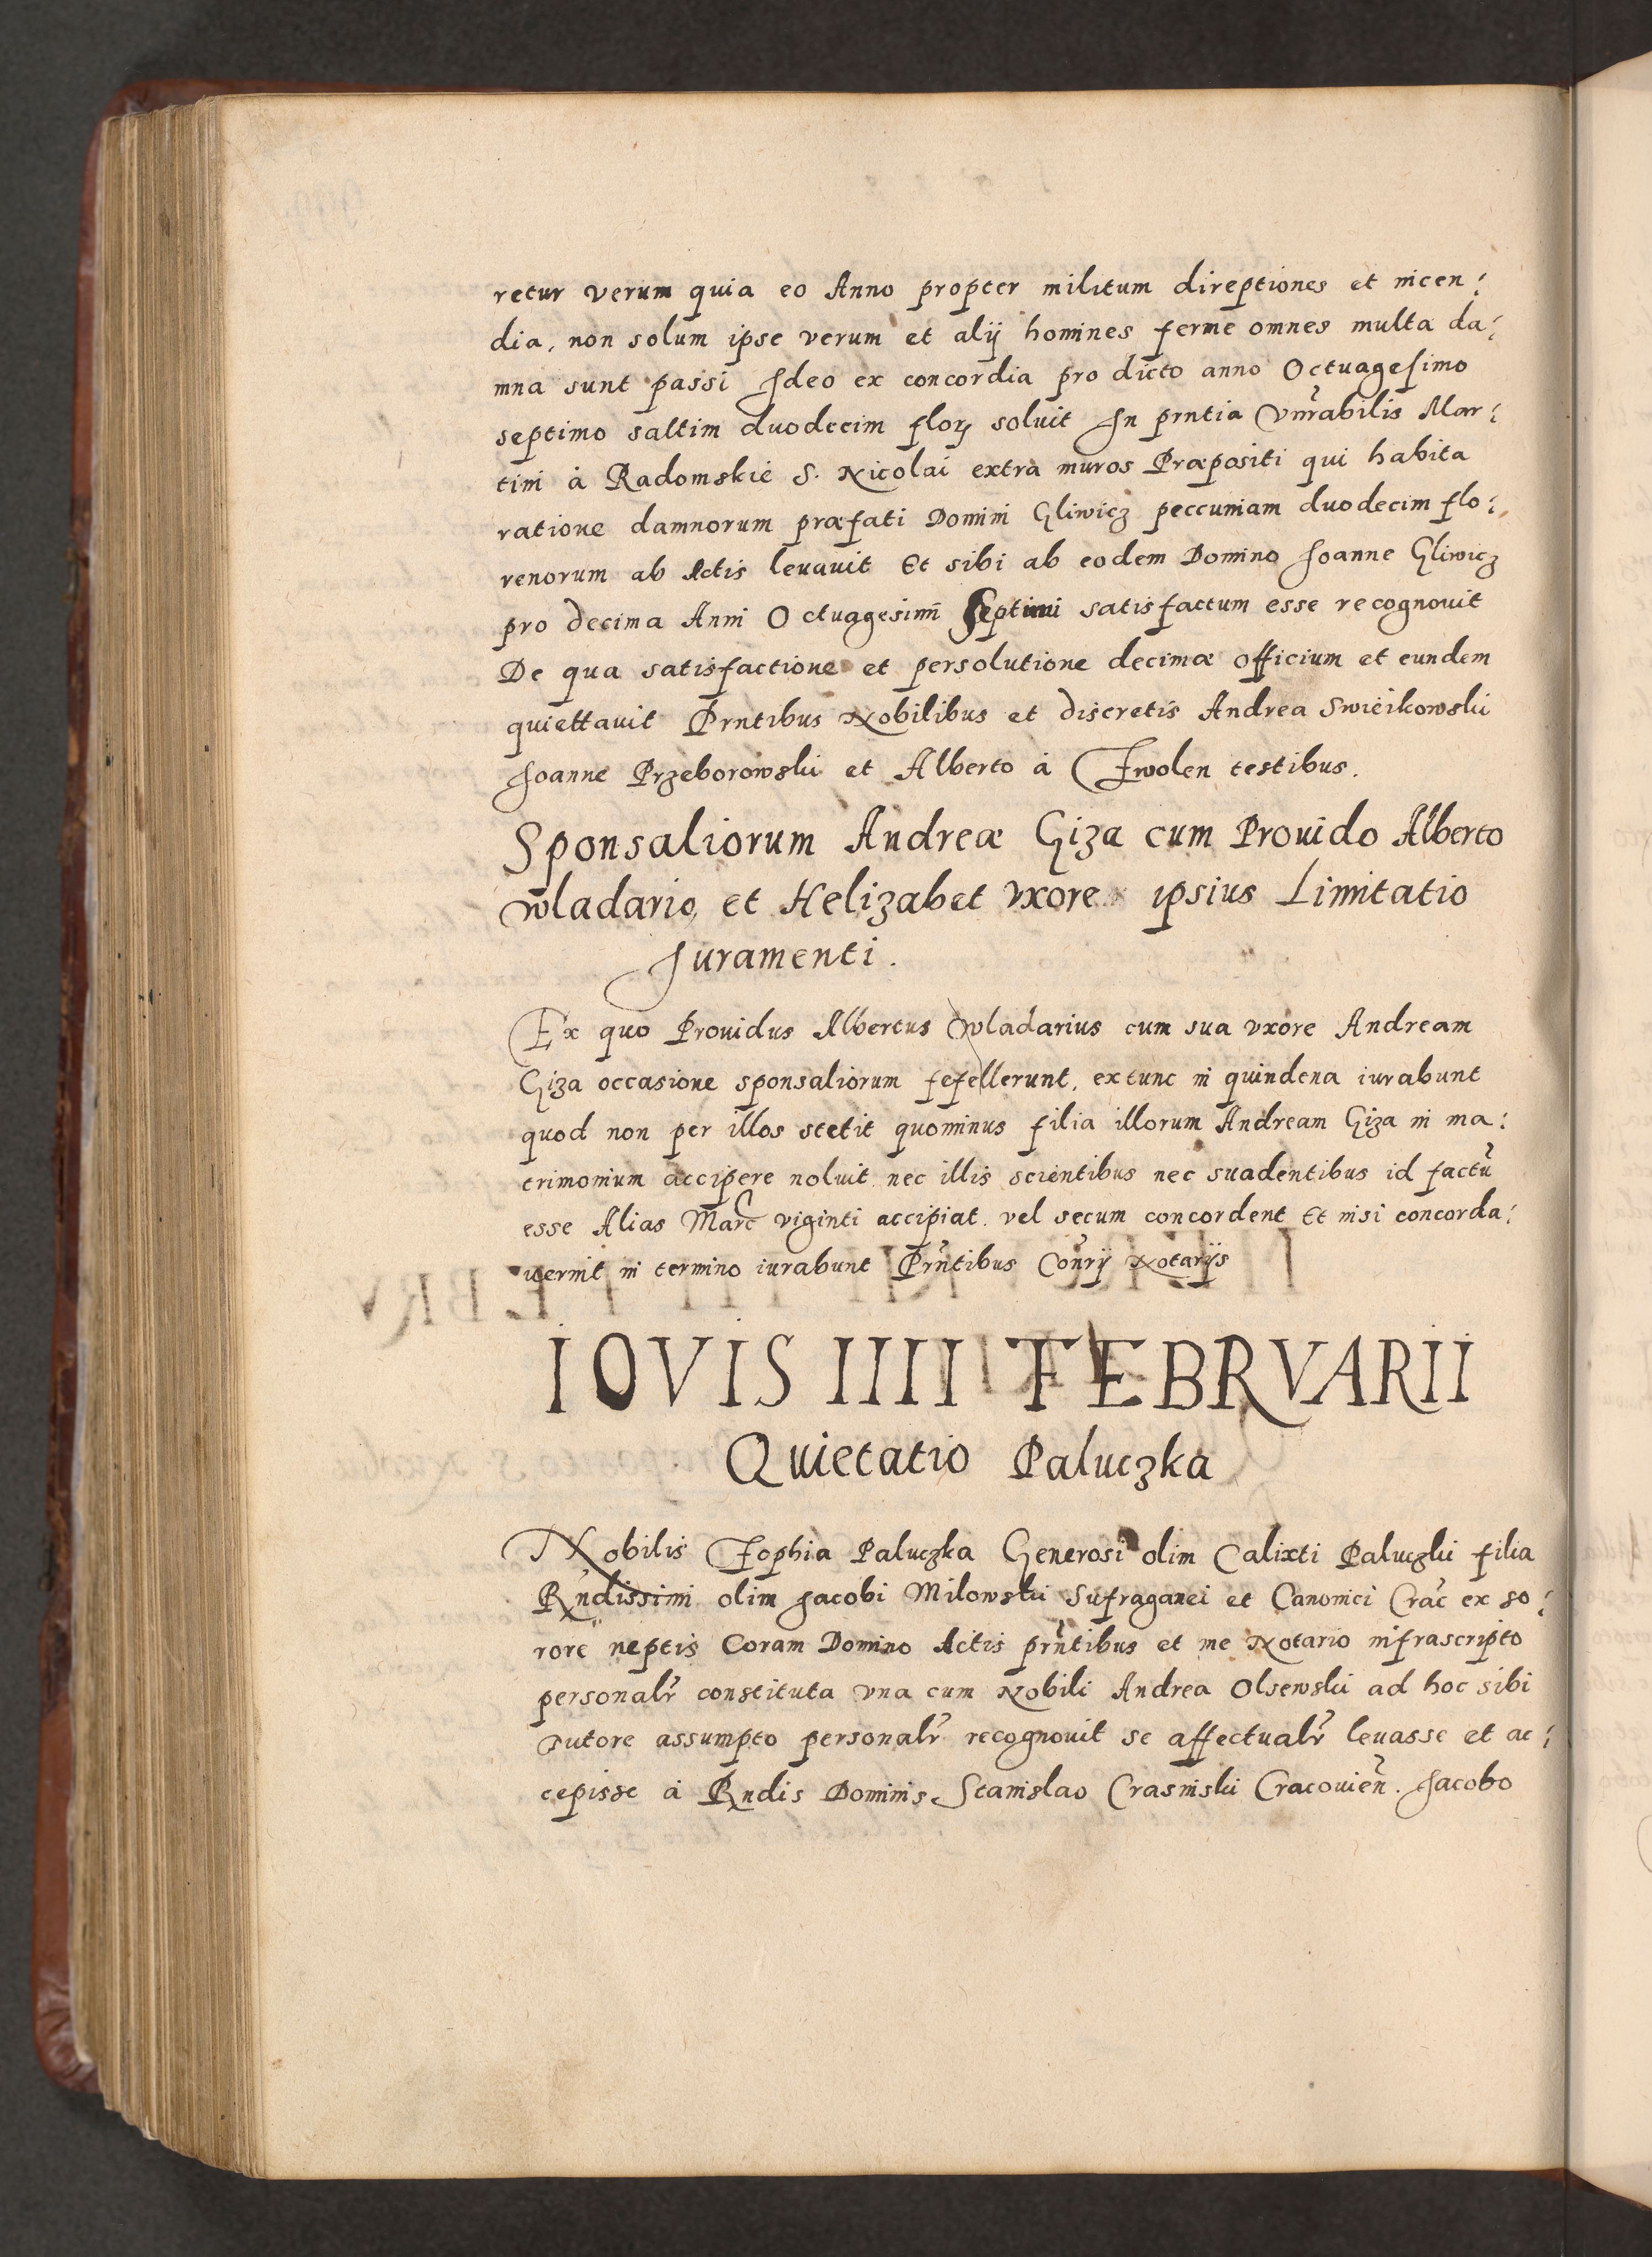 retur verum quia eo Anno propter militum direptiones et incen:
dia, non solum ipse verum et alij homines ferme omnes multa da:
mna sunt passi Ideo ex concordia pro dicto anno Octuagesimo
septimo saltim duodecim flor soluit In prntia Vnrabilis Mar:
tini à Radomskie S. Nicolai extra muros Præpositi qui habita
ratione damnorum præfati Domini Gliwicz peccuniam duodecim flo:
renorum ab Actis leuauit Et sibi ab eodem Domino Joanne Gliwicz
pro decima Anni Octuagesimi Septimi satisfactum esse recognouit
De qua satisfactione et persolutione decimæ officium et eundem
quiettauit Prntibus Nobilibus et discretis Andrea Swieikowski
Joanne Przeborowski et Alberto à Zwolen testibus.
Sponsaliorum Andreæ Giza cum Prouido Alberto
wladario et Helizabet vxore ipsius Limitatio
Juramenti.
Ex quo Prouidus Albertus wladarius cum sua vxore Andream
Giza occasione sponsaliorum fefellerunt, extunc in quindena iurabunt
quod non per illos stetit quominus filia illorum Andream Giza in ma:
trimonium accipere noluit nec illis scientibus nec suadentibus id factũ
esse Alias Marc viginti accipiat. vel secum concordent Et nisi concorda:
uerint in termino iurabunt Prñtibus Conrij Notarijs
IOVIS IIII FEBRVARII
Quietatio Paluczka
Nobilis Zophia Paluczka Generosi olim Calixti Paluczki filia
Rndissimi olim Jacobi Milowski Sufraganei et Canonici Crac ex so:
rore neptis Coram Domino Actis prñtibus et me Notario infrascripto
personalr constituta vna cum Nobili Andrea Olsewski ad hoc sibi
Tutore assumpto personalr recognouit se affectualr leuasse et ac:
cepisse à Rndis Dominis Stanislao Crasinski Cracouieñ. Jacobo